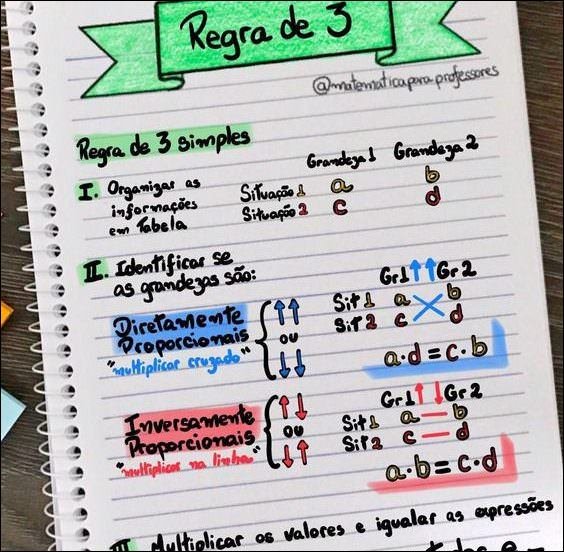 Regra de 3
@matematicapara.professores
Regra de 3 simples
Grandeza 1 Grandeza 2
I. Organizar as informações em Tabela
Situação 1 a b
Situação 2 c d
II. Identificar se as grandezas são:
Gr1 ↑↑ Gr2
Sit 1 a b
Sit 2 c d
Diretamente Proporcionais
"multiplicar cruzado"
↑↑
ou
↓↓
a·d = c·b
Gr1 ↑↓ Gr2
Sit 1 a — b
Sit 2 c — d
Inversamente Proporcionais
"multiplicar na linha"
↑↓
ou
↓↑
a·b = c·d
III. Multiplicar os valores e igualar as expressões